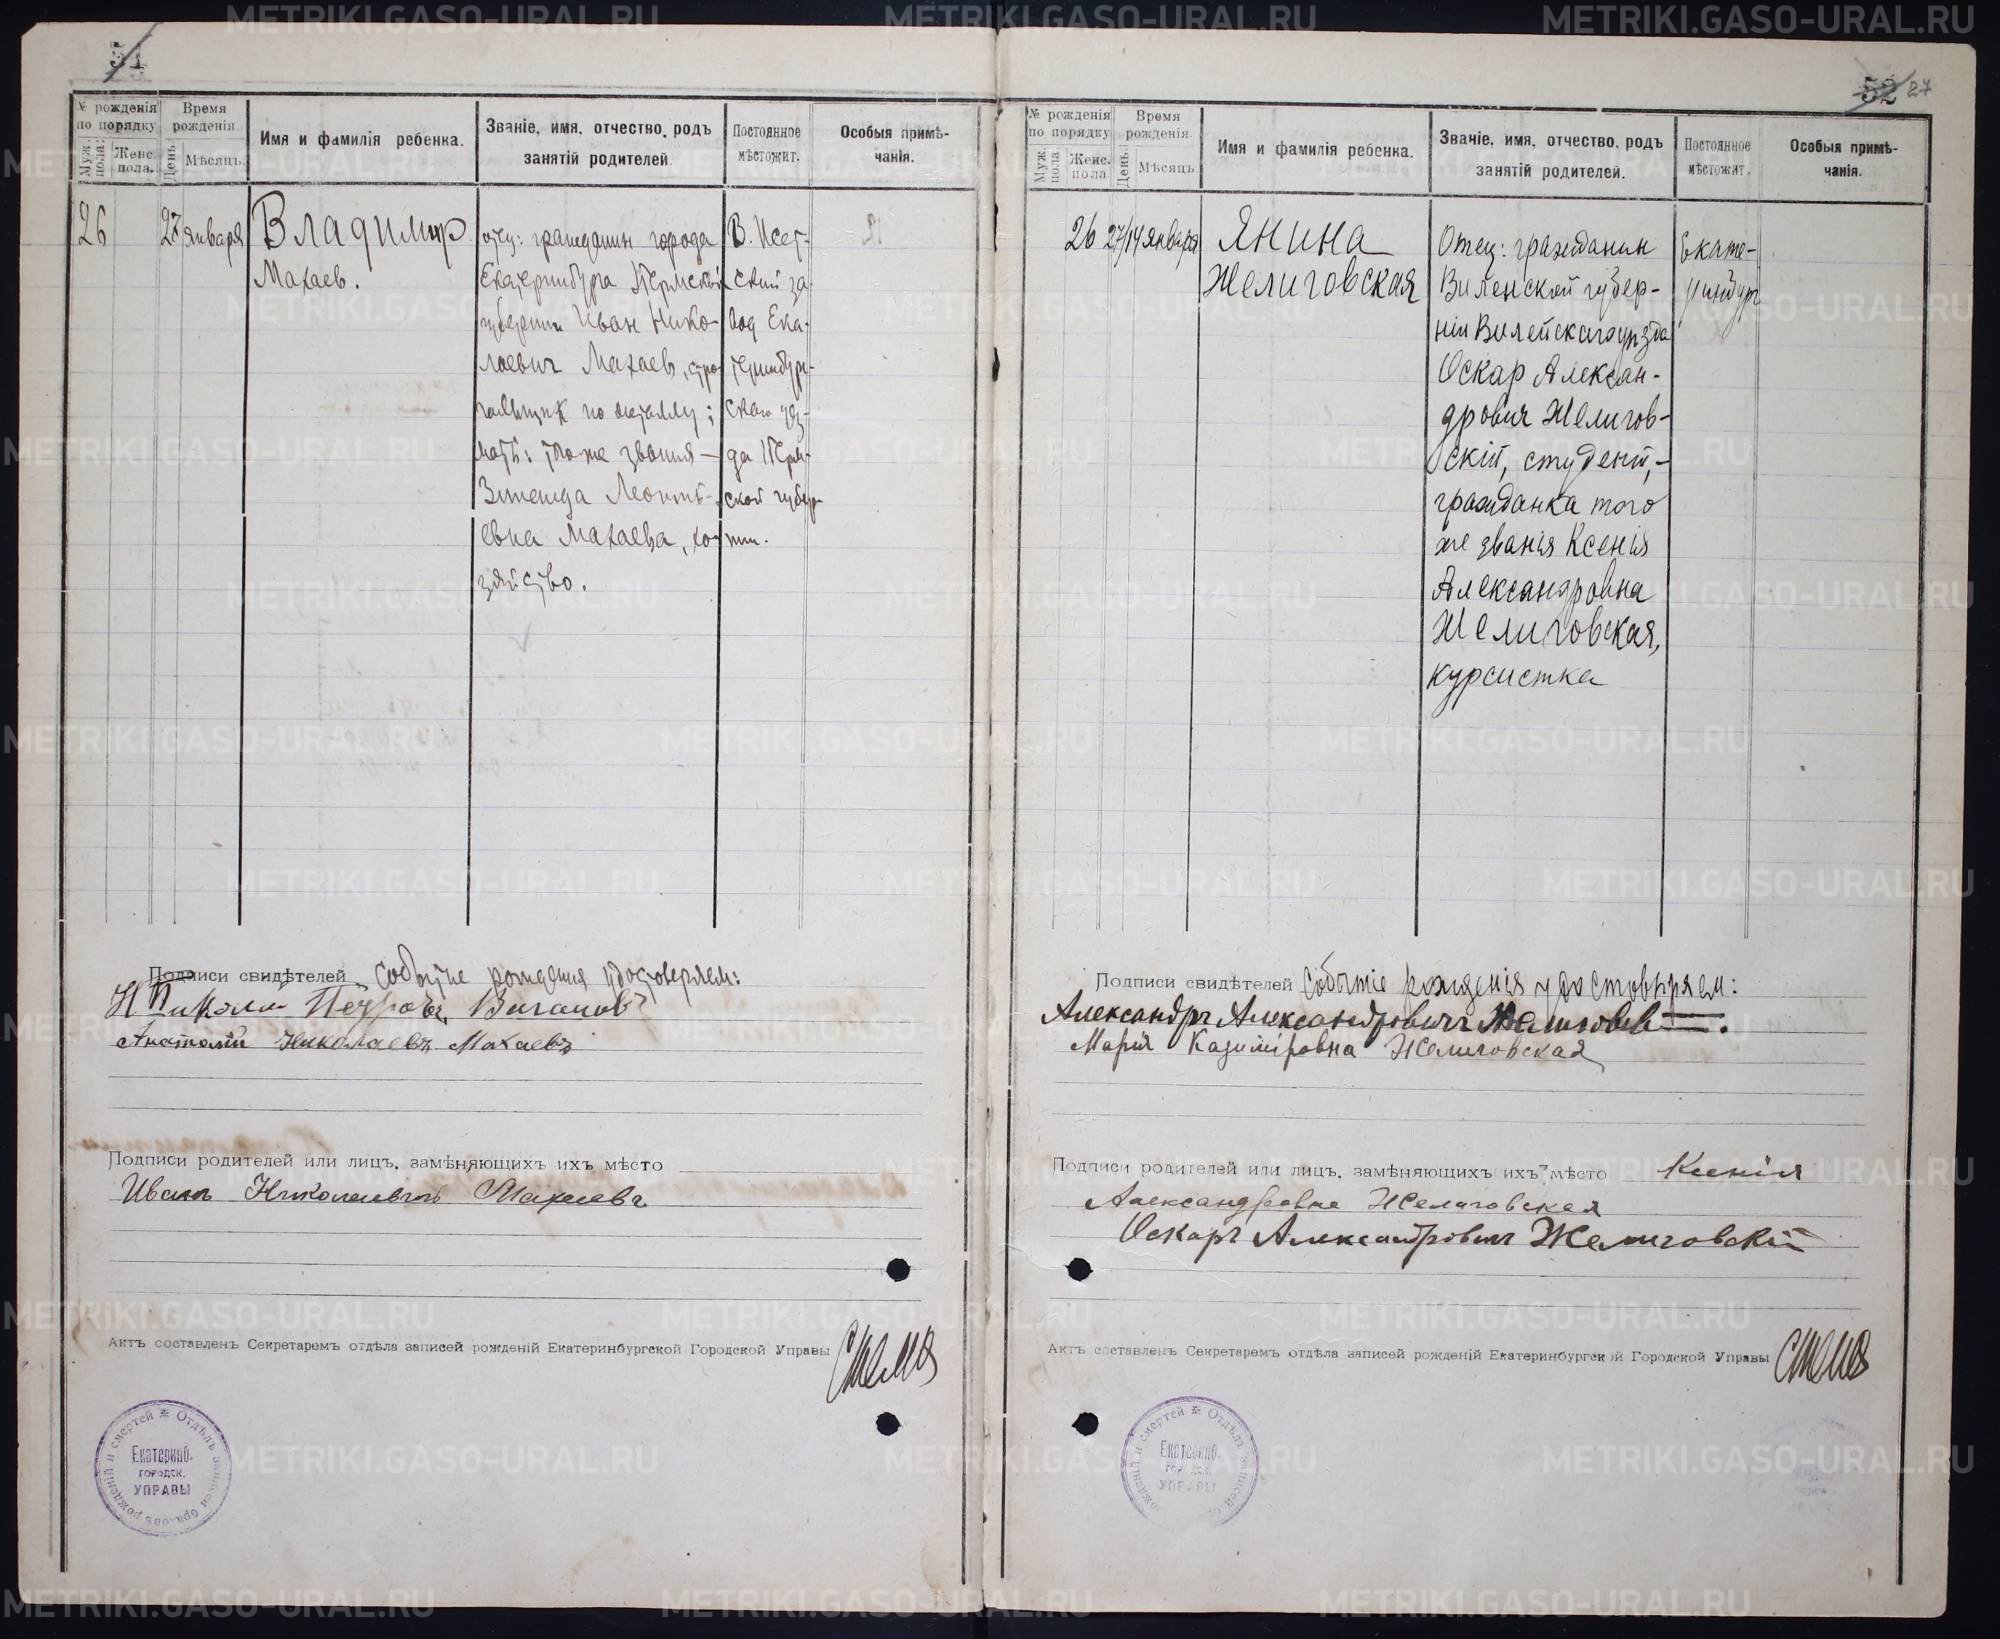 51
№ рожденія по порядку
Муж. пола:
Женс. пола.
Время рожденія.
День.
Мѣсяцъ.
Имя и фамилія ребенка.
Званіе, имя, отчество, родъ
занятій родителей.
Постоянное
мѣстожит.
Особыя примѣ-
чанія.
26
27
января
Владимир
Махаев.
отец: гражданин города
Екатеринбурга Пермской
губернии Иван Нико-
лаевич Махаев, стро-
гальщик по металлу;
мать: того же звания —
Зинаида Леонтi-
евна Махаева, хо-
зяйство.
В. Исет-
ский за-
вод Ека-
теринбург-
ского уез-
да Перм-
ской губер-
нии.
Подписи свидѣтелей Событие рождения удостоверяем:
Николай Петровъ
Анатолій Николаевъ Махаевъ
Подписи родителей или лицъ, замѣняющихъ ихъ мѣсто
Иванъ Николаевичъ Махаевъ
Актъ составленъ Секретаремъ отдѣла записей рожденій Екатеринбургской Городской Управы
Отдѣлъ записей браковъ рожденій и смертей
Екатеринб.
ГОРОДСК.
УПРАВЫ
52 27
№ рожденія по порядку
Муж. пола
Женс. пола.
Время рожденія.
День.
Мѣсяцъ.
Имя и фамилія ребенка.
Званіе, имя, отчество, родъ
занятій родителей.
Постоянное
мѣстожит.
Особыя примѣ-
чанія.
26
27/14 января
Янина
Желиговская
Отец: гражданин
Виленской губер-
ніи Вилейскаго уѣзда
Оскар Алексан-
дрович Желигов-
скій, студент, —
гражданка того
же званія Ксенія
Александровна
Желиговская,
курсистка
Екате-
ринбург
Подписи свидѣтелей Событіе рожденія удостовѣряем:
Александръ Александровичъ
Марія Казиміровна Желиговская
Подписи родителей или лицъ, замѣняющихъ ихъ мѣсто Ксенія
Александровна Желиговская
Оскаръ Александровичъ Желиговскій
Актъ составленъ Секретаремъ отдѣла записей рожденій Екатеринбургской Городской Управы
Отдѣлъ записей браковъ рожденій и смертей
Екатеринб.
ГОРОДСК.
УПРАВЫ
METRIKI.GASO-URAL.RU